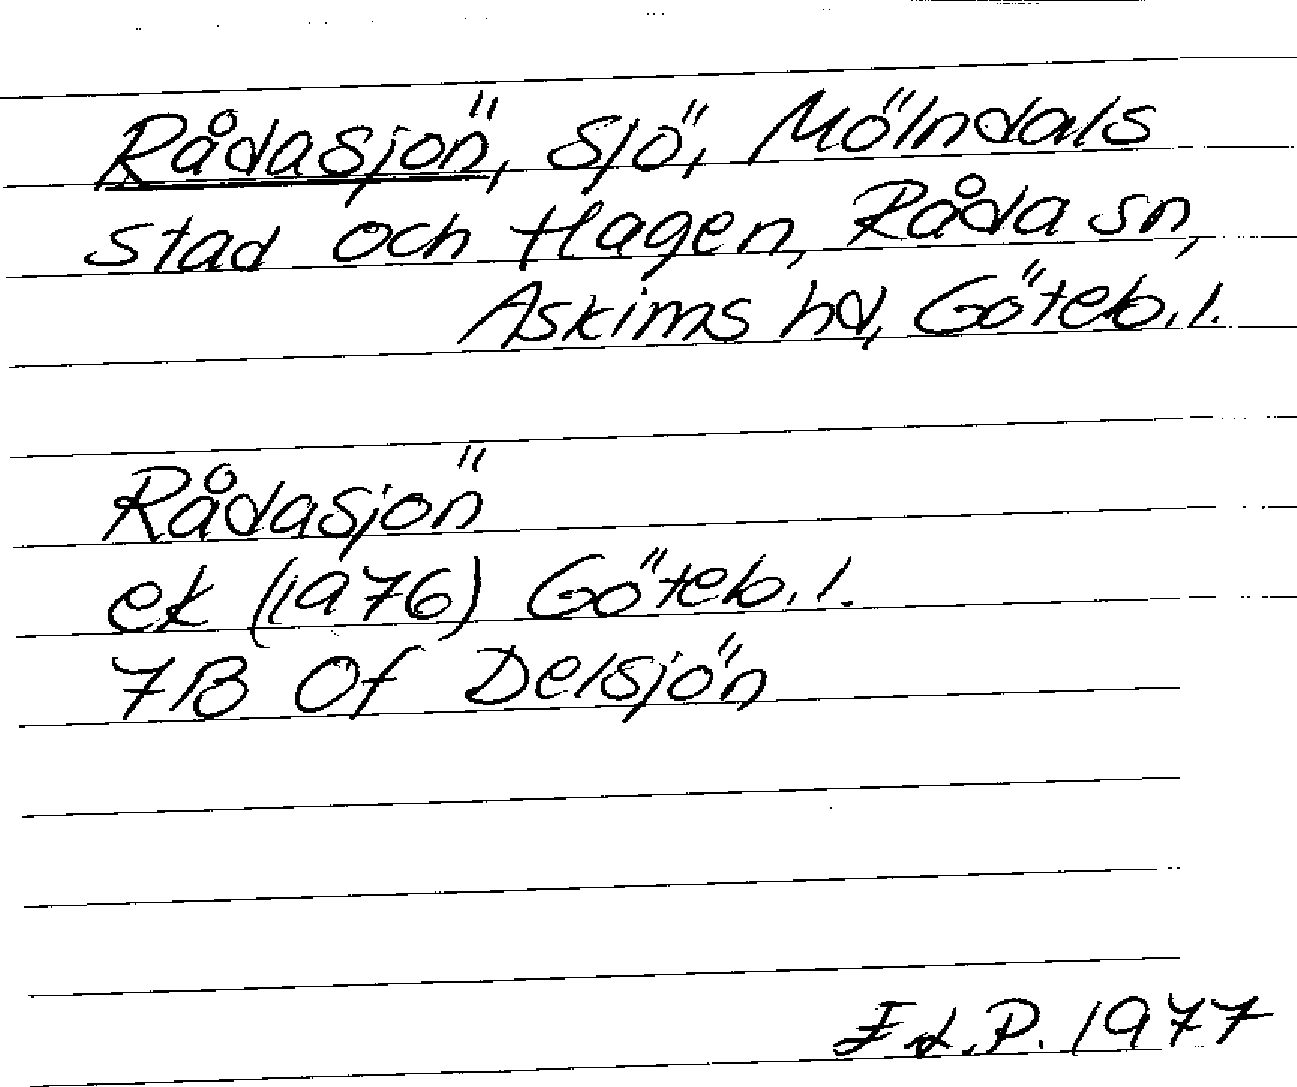 Rådasjön, sjö, Mölndals
stad och Hagen, Råda sn,
Askims hd, Göteb. l.
Rådasjön
ek (1976) Göteb. l.
7B 0f Delsjön
P. 1977